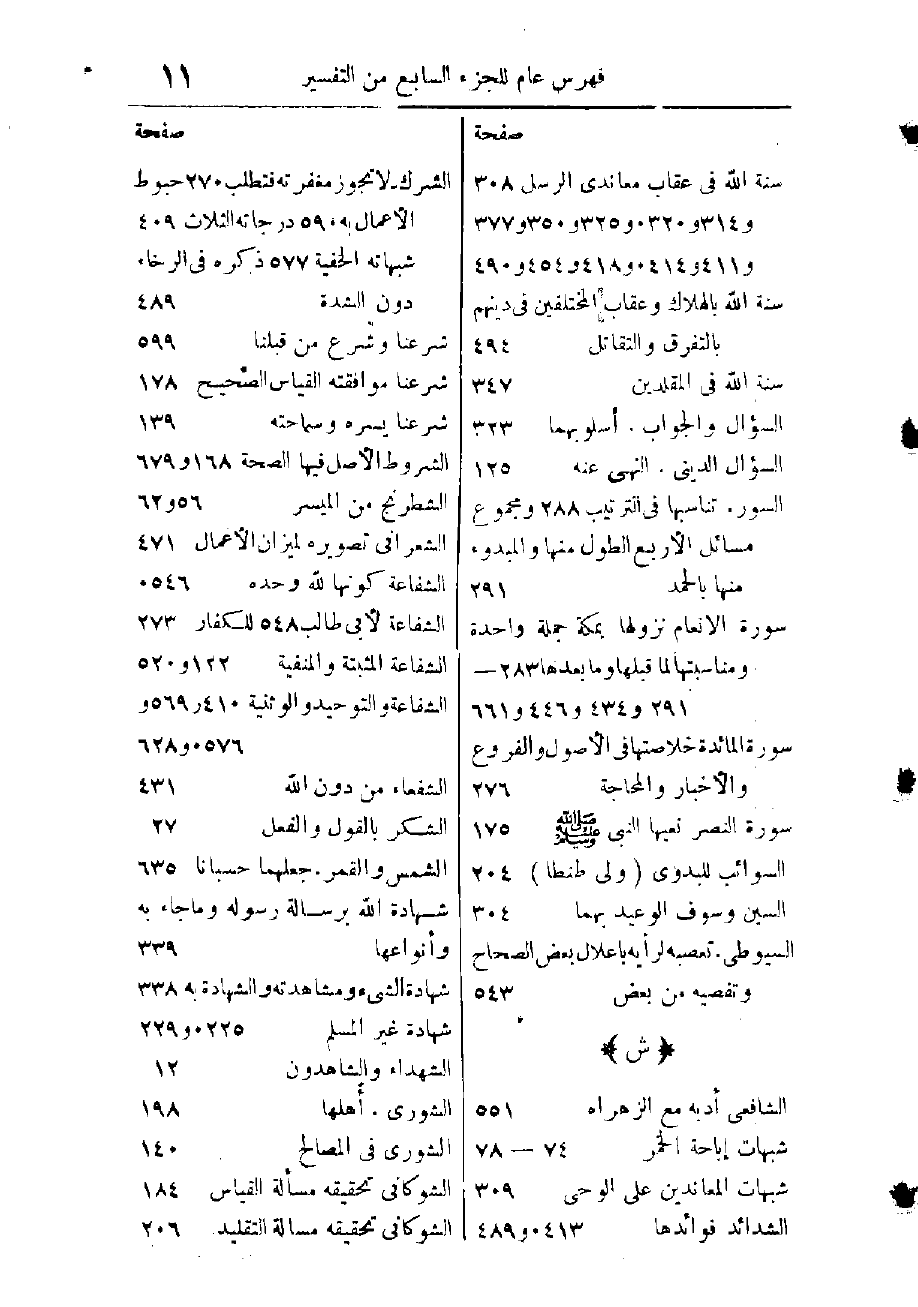 فهرس عام للجزء السابع من التفسير ١١
صفحة
سنة الله فى عقاب معاندى الرسل ٣٠٨
و٣١٤و٣٢٠و٣٢٥و٣٥٠و٣٧٧
و٤١١و٤١٤و٤١٨و٤٥٤و٤٩٠
سنة الله بالهلاك وعقاب المختلفين فى دينهم
بالتفرق والتقاتل ٤٩٤
سنة الله فى المقلدين ٣٤٧
السؤال والجواب . أسلوبهما ٣٢٣
السؤال الدينى . النهى عنه ١٢٥
السور. تناسبها فى الترتيب ٢٨٨ ومجموع
مسائل الأربع الطول منها والمبدوء
منها بالحمد ٢٩١
سورة الانعام نزولها بمكة جملة واحدة
ومناسبتها لما قبلها وما بعدها ٢٨٣ —
٢٩١ و٤٣٤ و٤٤٦ و٦٦١
سورة المائدة خلاصتها فى الأصول والفروع
والأخبار والمحاجة ٢٧٦
سورة النصر نعيها النبى ﷺ ١٧٥
السوائب للبدوى (ولى طنطا) ٢٠٤
السين وسوف الوعيد بهما ٣٠٤
السيوطى. تعصبه لرأيه باعلال بعض الصحاح
وتفصيه من بعض ٥٤٣
﴿ ش ﴾
الشافعى أدبه مع الزهراء ٥٥١
شبهات إباحة الخمر ٧٤ — ٧٨
شبهات المعاندين على الوحى ٣٠٩
الشدائد فوائدها ٤١٣و٤٨٩
صفحة
الشرك. لا تجوز مغفرته فتطلب ٢٧٠ حبوط
الأعمال به ٥٩٠ درجاته الثلاث ٤٠٩
شبهاته الخفية ٥٧٧ ذكره فى الرخاء
دون الشدة ٤٨٩
شرعنا وشرع من قبلنا ٥٩٩
شرعنا موافقته القياس الصحيح ١٧٨
شرعنا يسره وسماحته ١٣٩
الشروط الأصل فيها الصحة ١٦٨ و٦٧٩
الشطرنج من الميسر ٥٦و٦٢
الشعرانى تصويره لميزان الأعمال ٤٧١
الشفاعة كونها لله وحده ٥٤٦
الشفاعة لأبى طالب ٥٤٨ للكفار ٢٧٣
الشفاعة المثبتة والمنفية ١٢٢و٥٢٠
الشفاعة والتوحيد والوثنية ٤١٠و٥٦٩و
٥٧٦و٦٢٨
الشفعاء من دون الله ٤٣١
الشكر بالقول والفعل ٢٧
الشمس والقمر. جعلهما حسبانا ٦٣٥
شهادة الله برسالة رسوله وما جاء به
وأنواعها ٣٣٩
شهادة الشىء ومشاهدته والشهادة به ٣٣٨
شهادة غير المسلم ٢٢٥و٢٢٩
الشهداء والشاهدون ١٢
الشورى . أهلها ١٩٨
الشورى فى المصالح ١٤٠
الشوكانى تحقيقه مسألة القياس ١٨٤
الشوكانى تحقيقه مسالة التقليد ٢٠٦